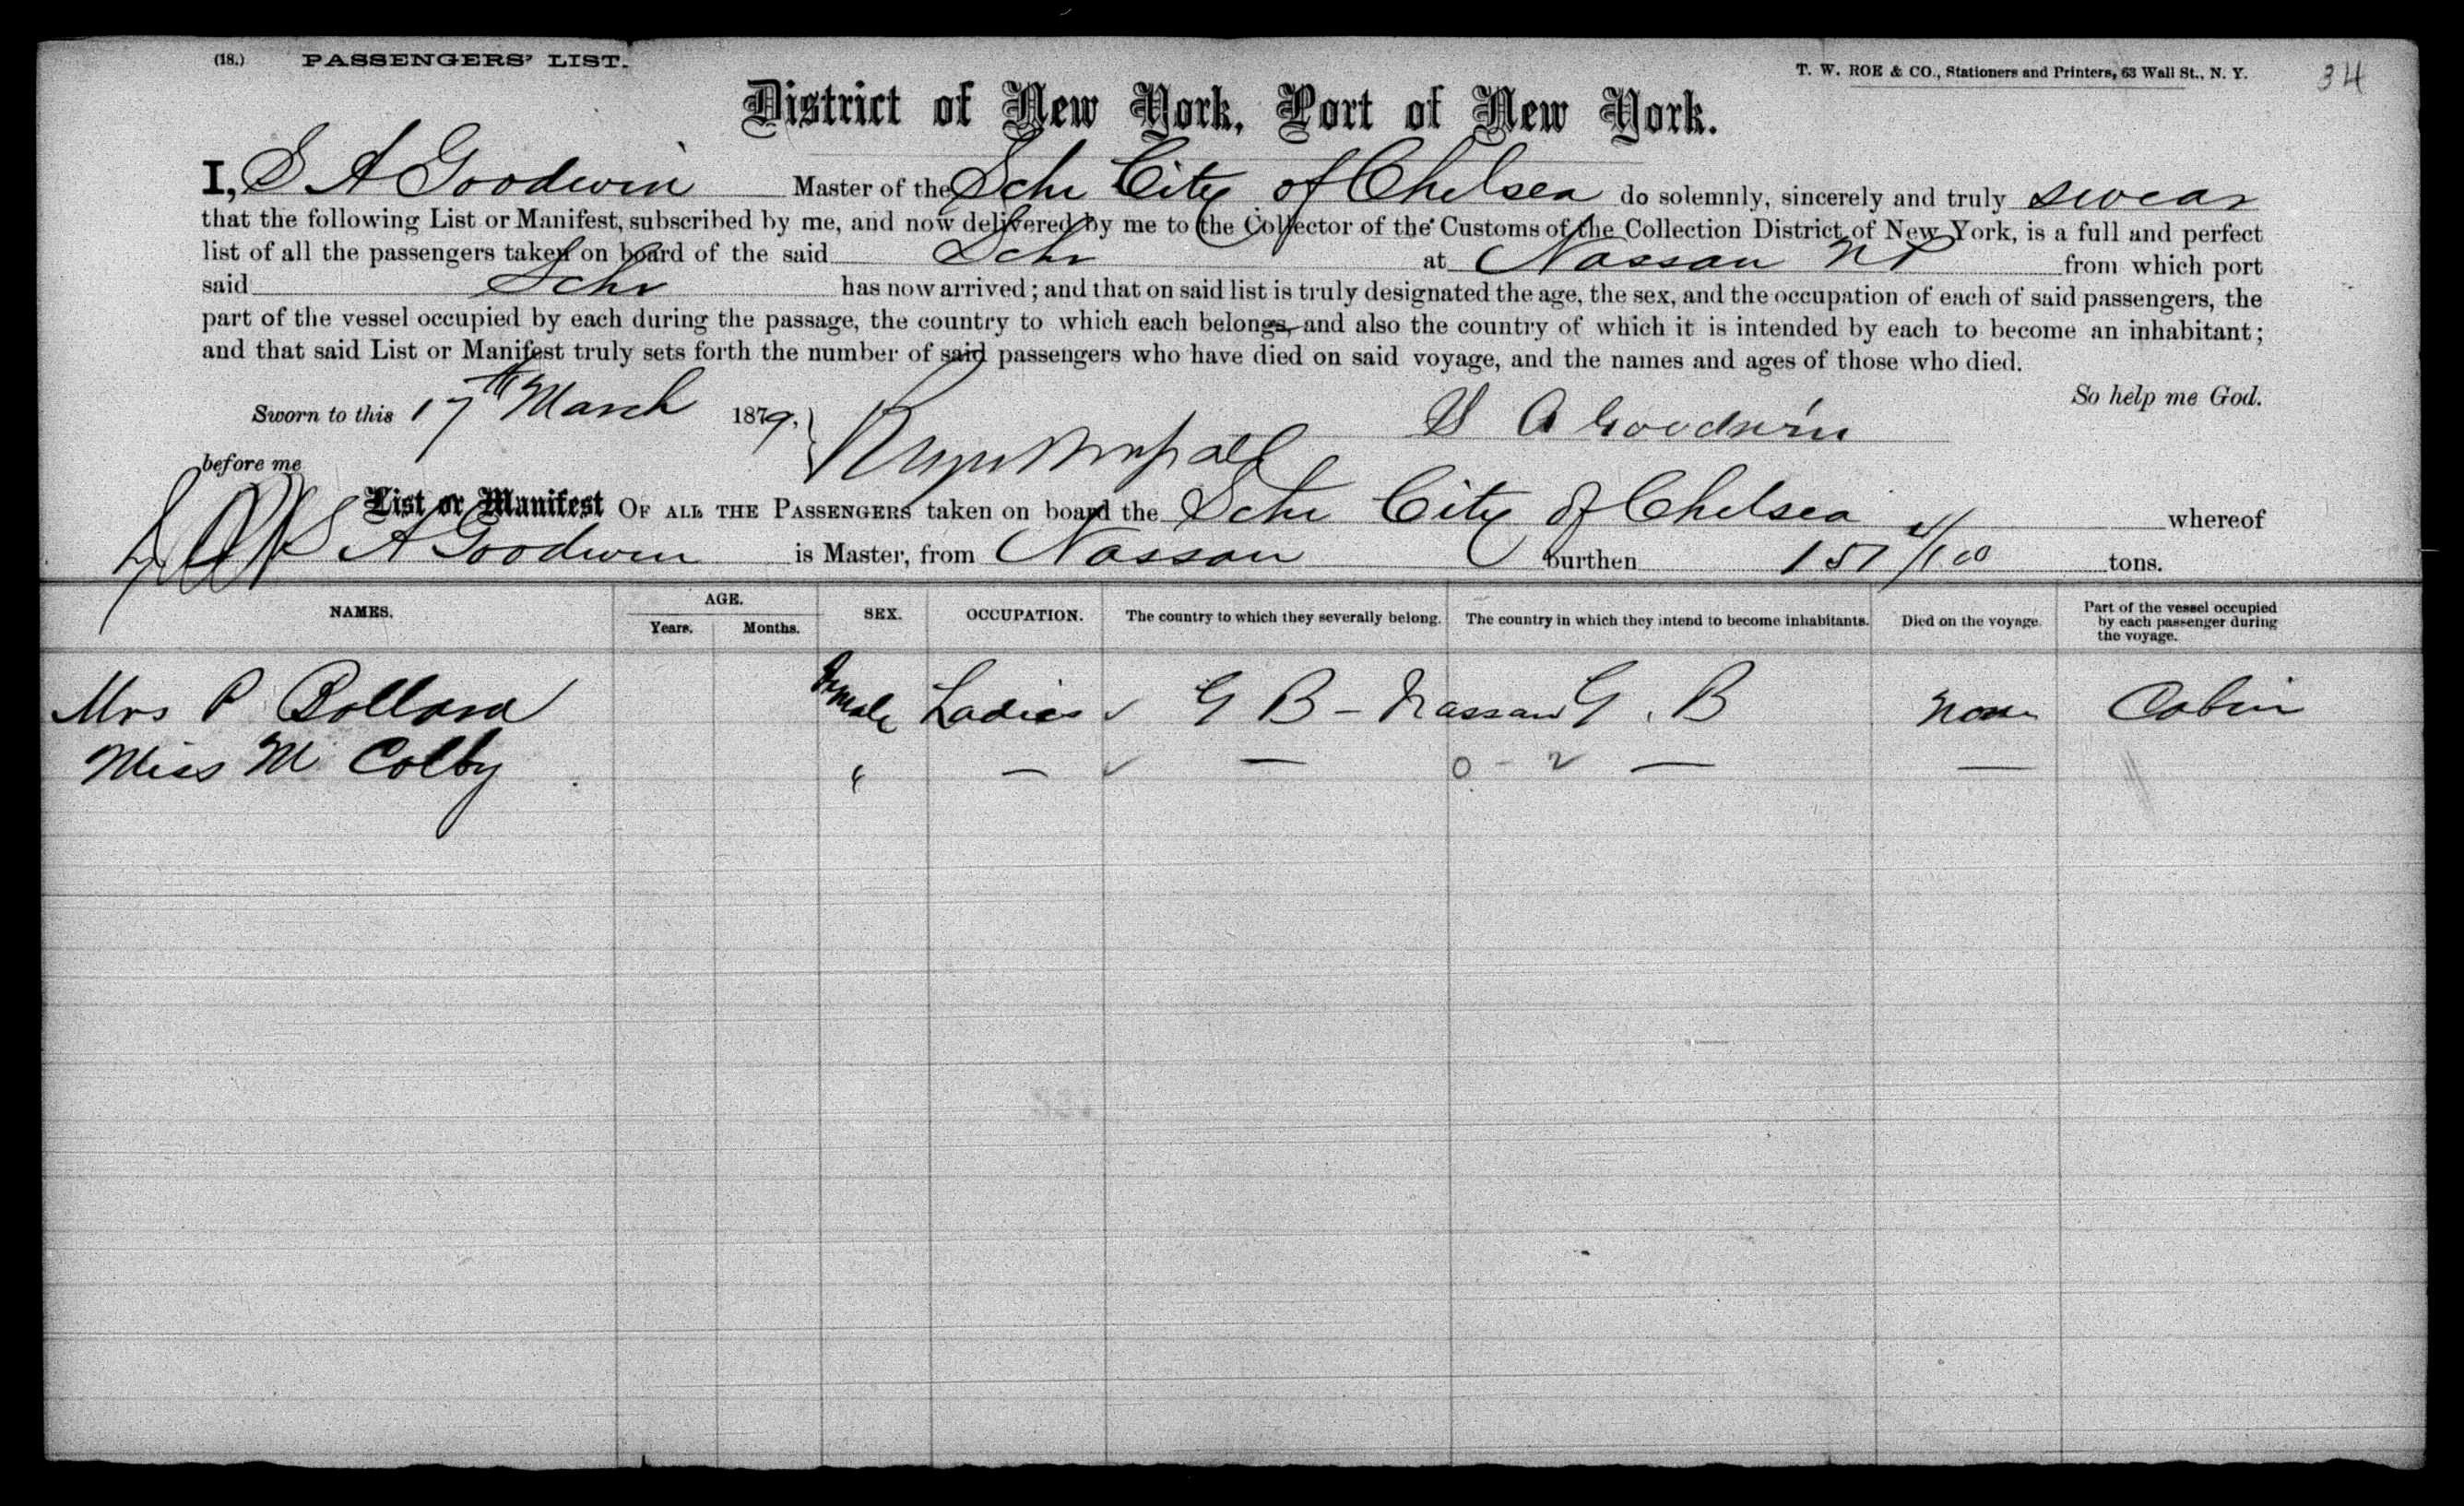 (18.) PASSENGERS' LIST.
T. W. ROE & CO., Stationers and Printers, 63 Wall St., N. Y. 34
District of New York, Port of New York.
I, S A Goodwin Master of the Schr City of Chelsea do solemnly, sincerely and truly swear
that the following List or Manifest, subscribed by me, and now delivered by me to the Collector of the Customs of the Collection District of New York, is a full and perfect
list of all the passengers taken on board of the said Schr at Nassau NP from which port
said Schr has now arrived; and that on said list is truly designated the age, the sex, and the occupation of each of said passengers, the
part of the vessel occupied by each during the passage, the country to which each belongs, and also the country of which it is intended by each to become an inhabitant;
and that said List or Manifest truly sets forth the number of said passengers who have died on said voyage, and the names and ages of those who died.
So help me God.
Sworn to this 17th March 1879.
S A Goodwin
before me
List or Manifest OF ALL THE PASSENGERS taken on board the Schr City of Chelsea whereof
S A Goodwin is Master, from Nassau burthen 151 /100 tons.
NAMES. AGE. Years. Months. SEX. OCCUPATION. The country to which they severally belong. The country in which they intend to become inhabitants. Died on the voyage. Part of the vessel occupied by each passenger during the voyage.
Mrs P Bollard Female Ladies ✓ G B – Nassau G. B None Cabin
Miss M Colby " — ✓ — — — "